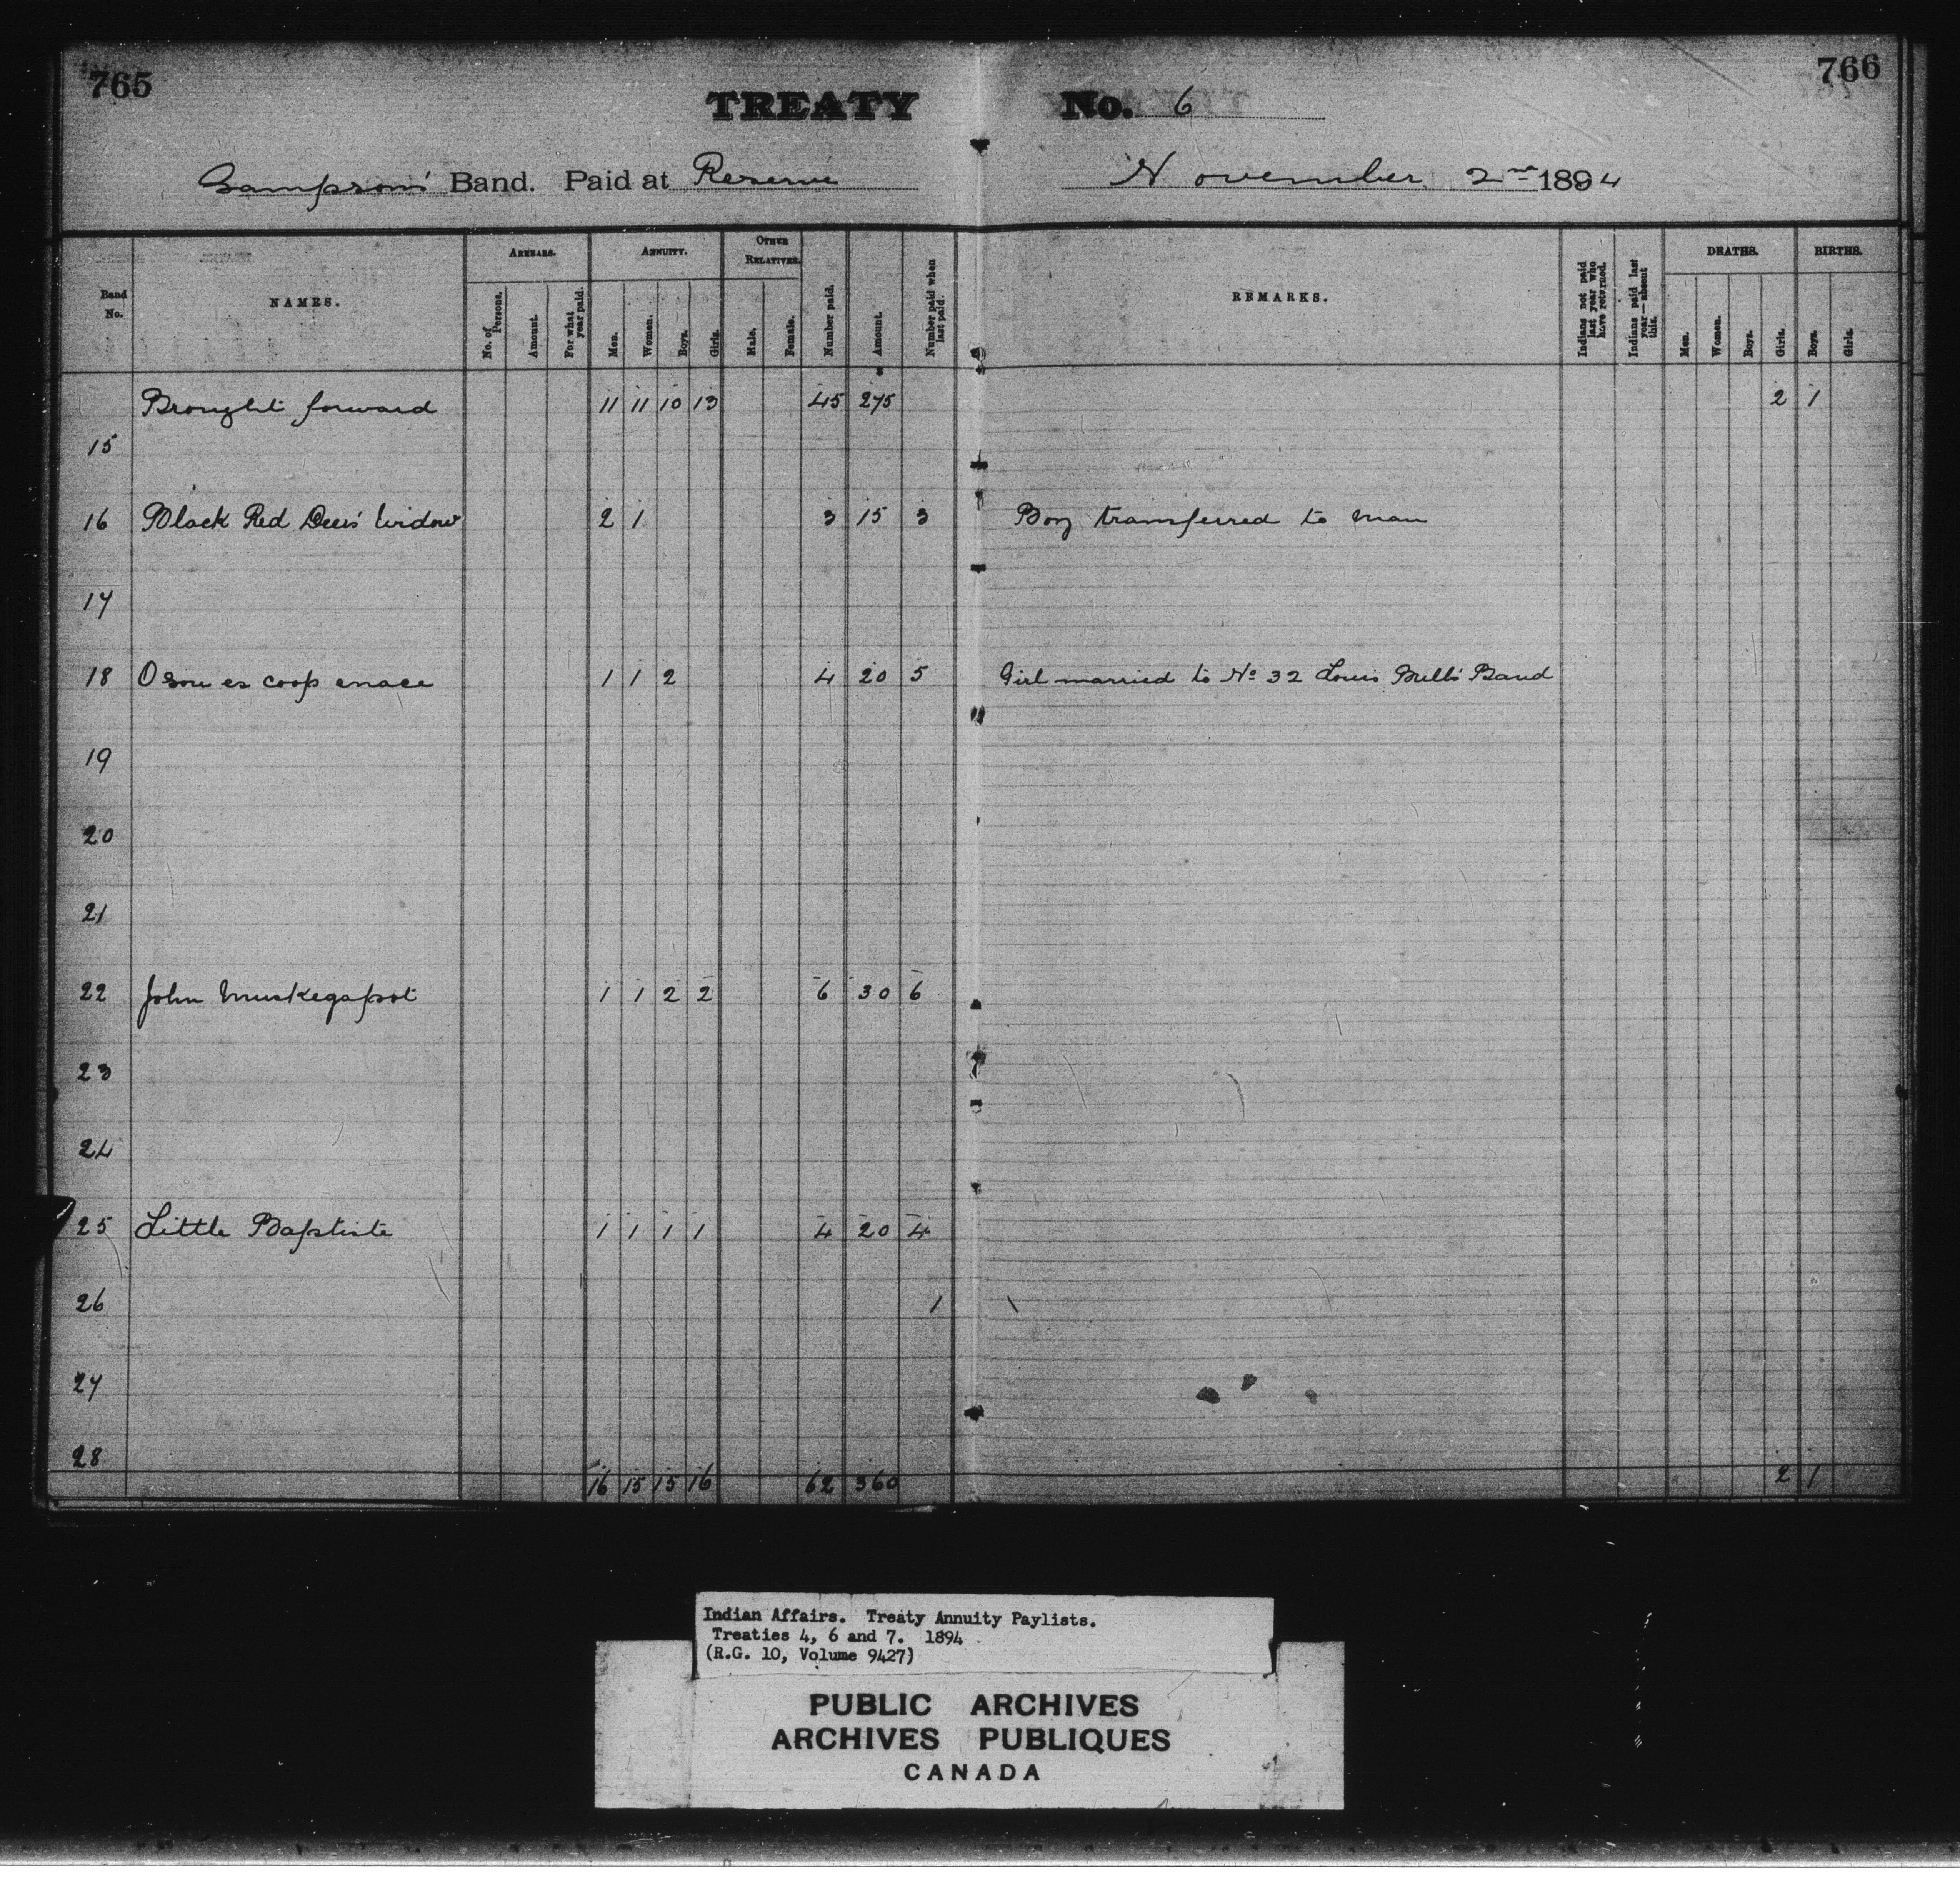 765
766
TREATY No. 6
Sampson's Band. Paid at Reserve November 2nd 1894
Band No.
NAMES.
ARREARS.
No. of Persons.
Amount.
For what year paid.
ANNUITY.
Men.
Women.
Boys.
Girls.
OTHER RELATIVES.
Male.
Female.
Number paid.
Amount.
Number paid when last paid.
REMARKS.
Indians not paid last year who have returned.
Indians paid last year—absent this.
DEATHS.
Men.
Women.
Boys.
Girls.
BIRTHS.
Boys.
Girls.
Brought forward 11 11 10 13 45 275 2 1
15
16 Black Red Deer's Widow 2 1 3 15 3 Boy transferred to man
17
18 O sou es coop enace 1 1 2 4 20 5 Girl married to No 32 Louis Bull's Band
19
20
21
22 John Muskegapot 1 1 2 2 6 30 6
23
24
25 Little Baptiste 1 1 1 1 4 20 4
26
27
28
16 15 15 16 62 360 2 1
Indian Affairs. Treaty Annuity Paylists.
Treaties 4, 6 and 7. 1894
(R.G. 10, Volume 9427)
PUBLIC ARCHIVES
ARCHIVES PUBLIQUES
CANADA